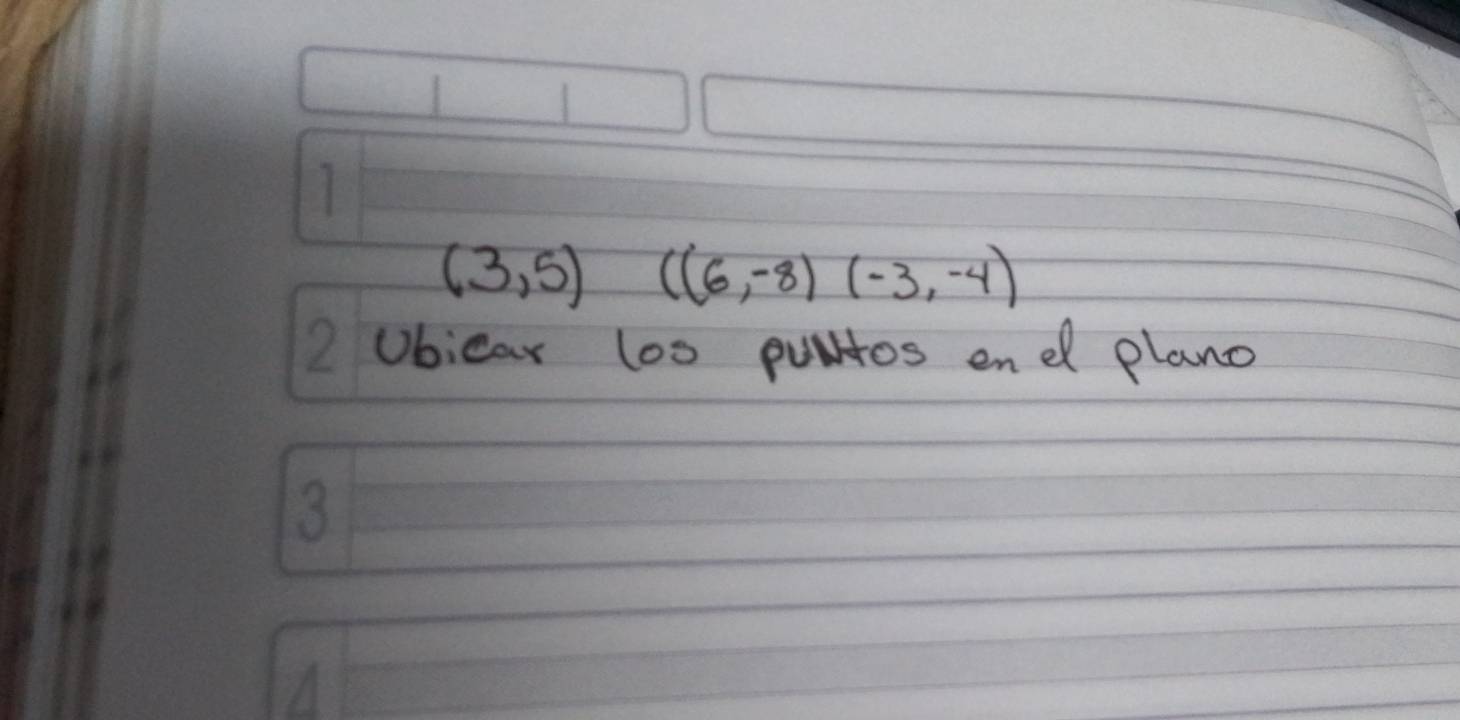 1
(3,5) ((6,-8) (-3,-4)
2 Ubicar los puntos en el plano
3
4